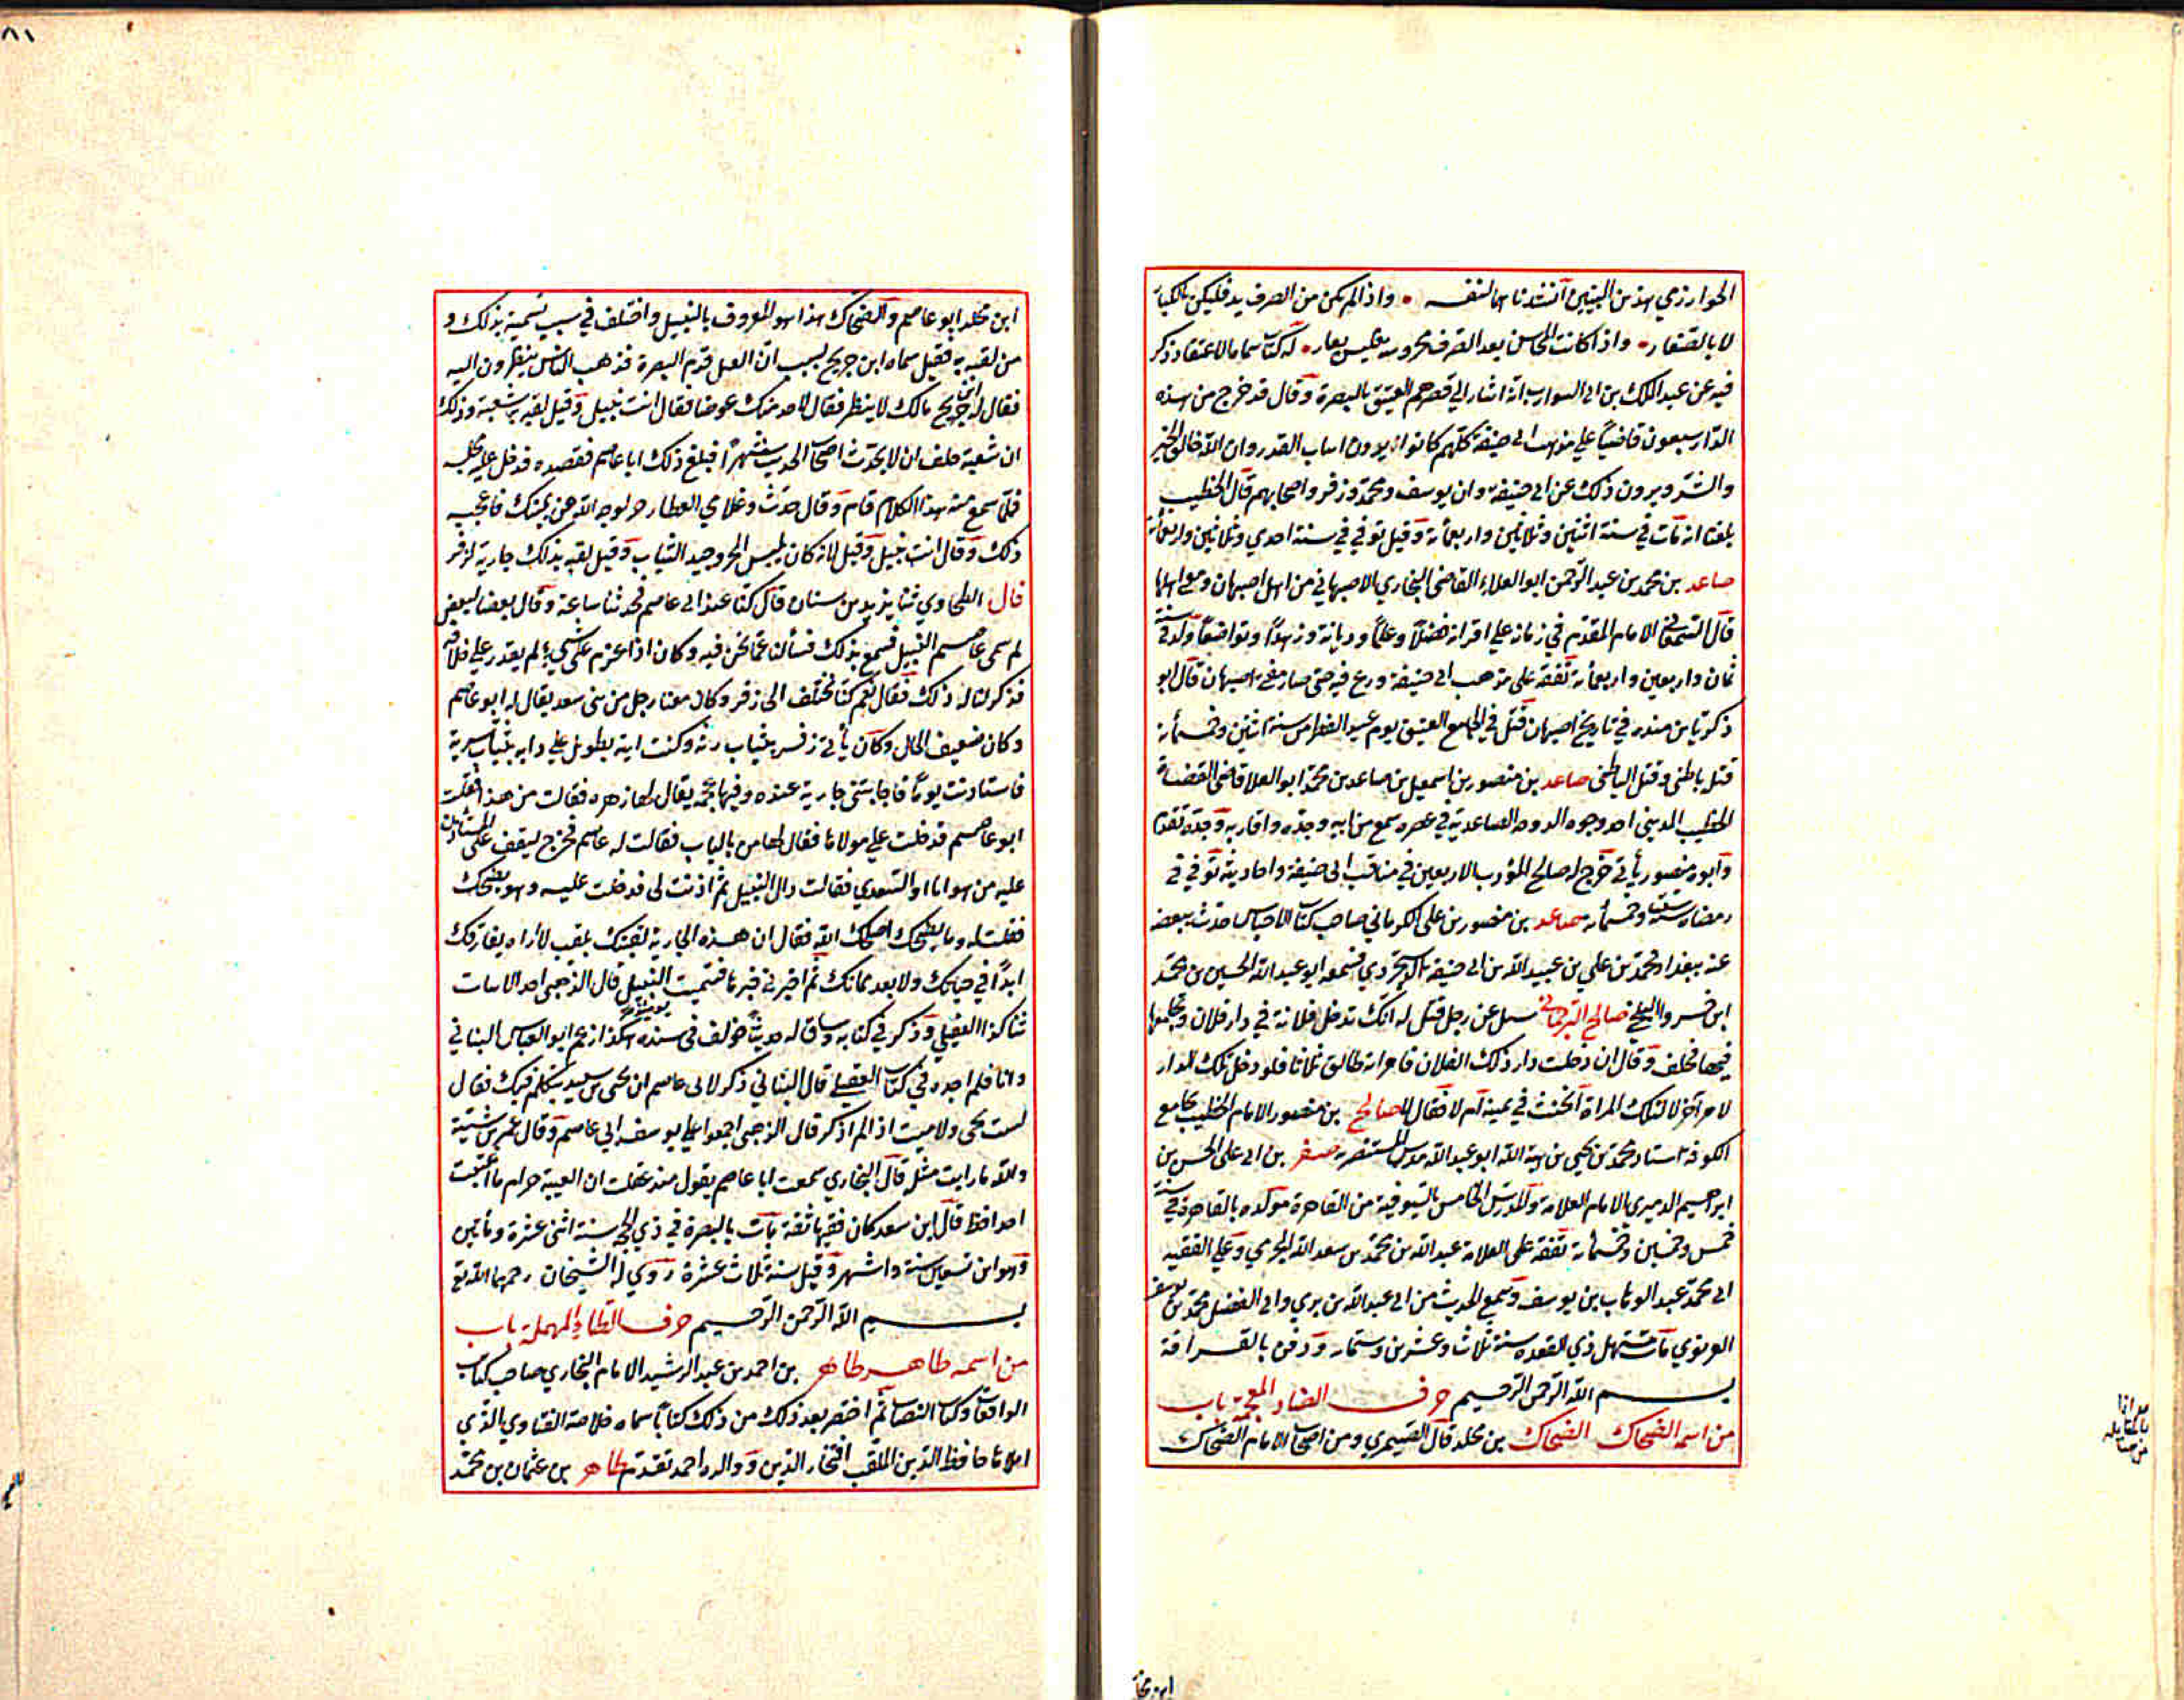 الخوارزمي هذين البيتين أنشدناهما لنفسه • واذا لم يكن من الصرف بد فليكن بالكبار
لا بالصغار • واذا كانت المحاسن بعد الصرف محروسة فليس بعار • له كتاب سماه الاعتقاد ذكر
فيه عن عبد الملك بن ابي الشوارب انه اشار الى قصرهم العتيق بالبصرة وقال قد خرج من هذه
الدار سبعون قاضيا على مذهب ابي حنيفة كلهم كانوا يرون اثبات القدر وان الله خالق الخير
والشر ويرون ذلك عن ابي حنيفة وابي يوسف ومحمد وزفر واصحابهم قال الخطيب
بلغنا انه مات في سنة اثنتين وثلاثين واربعمأة وقيل توفي في سنة احدي وثلاثين واربعمأة
صاعد بن محمد بن عبد الرحمن ابو العلاء القاضي البخاري الاصبهاني من اهل اصبهان ومن اهلها
قال السمعاني الامام المقدم في زمانه على اقرانه فضلا وعلما وديانة وزهدا وتواضعا ولد في سنة
ثمان واربعين واربعمأة تفقه على مذهب ابي حنيفة وبرع فيه حتى صار مفتي اصبهان قال ابو
زكريا بن منده في تاريخ اصبهان قتل في الجامع العتيق يوم عيد الفطر من سنة اثنتين وخمسمأة
قتله باطني وقتل الباطني صاعد بن منصور بن اسمعيل بن صاعد بن محمد ابو العلا قاضي القضاة
الخطيب المديني احد وجوه الدوحة الصاعدية في عصره سمع من ابيه وجده واقاربه وجده تقدم
وابوه منصور يأتي خرج له صالح المؤدب الاربعين في مناقب ابي حنيفة واحاديثه توفي في
رمضان سنة ست وخمسمأة صاعد بن منصور بن علي الكرماني صاحب كتاب الاجناس حدث ببعضه
عنه ببغداد محمد بن علي بن عبيد الله بن ابي حنيفة الدستجردي فسمعه ابو عبد الله الحسين بن محمد
ابن خسرو البلخي صالح الترجماني سئل عن رجل قيل له انك تدخل فلانة في دار فلان وتجامعها
فيها فحلف وقال ان دخلت دار ذلك الفلان فامرأته طالق ثلاثا فلو دخل تلك الدار
لامر آخر لا لتلك المراة أيحنث في يمينه ام لا فقال لا صالح بن منصور الامام الخطيب بجامع
الكوفة استاد محمد بن يحيى بن هبة الله ابو عبد الله مدرس المستنصرية صقر بن ابي علي الحسن بن
ابراهيم الدميري الامام العلامة والمدرس الخامس بالسيوفية من القاهرة مولده بالقاهرة في سنة
خمس وخمسين وخمسمأة تفقه على العلامة عبد الله بن محمد بن سعد الله الجريري وعلى الفقيه
ابي محمد عبد الوهاب بن يوسف وسمع الحديث من ابي عبد الله بن بري وابي الفضل محمد بن يوسف
الغزنوي مات مستهل ذي القعدة سنة ثلاث وعشرين وستمأة ودفن بالقرافة
بسم الله الرحمن الرحيم حرف الضاد المعجمة باب
من اسمه الضحاك الضحاك بن مخلد قال الصيمري ومن اصحاب الامام الضحاك
ابن مخلد
٨١
ابن مخلد ابو عاصم والضحاك هذا هو المعروف بالنبيل واختلف في سبب تسميته بذلك و
من لقبه به فقيل سماه ابن جريج لسبب ان الفيل قدم البصرة فذهب الناس ينظرون اليه
فقال له ابن جريج مالك لا ينظر فقال لا اجد منك عوضا فقال انت نبيل وقيل لقبه به شعبة وذلك
ان شعبة حلف ان لا يحدث اصحاب الحديث شهرا فبلغ ذلك ابا عاصم فقصده فدخل عليه مجلسه
فلما سمع منه هذا الكلام قام وقال حدث وغلامي العطار حر لوجه الله عن يمينك فاعجبه
ذلك وقال انت نبيل وقيل لانه كان يلبس الخز وجيد الثياب وقيل لقبه بذلك جارية لزفر
قال الطحاوي ثنا يزيد بن سنان قال كنا عند ابي عاصم فتحدثنا ساعة وقال بعضنا لبعض
لم سمي عاصم النبيل فسمع بذلك فسألنا عما نحن فيه وكان اذا عزم على شيء لم يقدر على خلافه
فذكرنا له ذلك فقال نعم كنا نختلف الى زفر وكان معنا رجل من بني سعد يقال له ابو عاصم
وكان ضعيف الحال وكان يأتي زفر بثياب رثة وكنت اتيه بطويل على دابة بثياب سرية
فاستأذنت يوما فاجابتني جارية عنده وفيها عجمة يقال لها زهرة فقالت من هذا فقلت
ابو عاصم فدخلت على مولاها فقال لها من بالباب فقالت له عاصم فخرج ليقف على المستأذن
عليه من هو انا او السعدي فقالت ذاك النبيل ثم اذنت لي فدخلت عليه وهو يضحك
فقلت له وما يضحك اضحك الله فقال ان هذه الجارية لقبتك بلقب لا اراه يفارقك
ابدا في حياتك ولا بعد مماتك ثم اخبرني خبرها فسميت النبيل قال الذهبي احد الاثبات
تناكذا العقيلي وذكره في كتابه وساق له حديثا خولف في سنده هكذا زعم ابو العباس البناني
وانا فلم اجده في كتاب العقيلي قال البناني ذكر لابي عاصم ان يحيى بن سعيد يتكلم فيك فقال
لست بحي ولا ميت اذا لم اذكر قال الذهبي اجمعوا على توثيق ابي عاصم وقال عمر بن شبة
والله ما رايت مثله قال البخاري سمعت ابا عاصم يقول منذ عقلت ان الغيبة حرام ما اغتبت
احدا قط قال ابن سعد كان فقيها ثقة مات بالبصرة في ذي الحجة سنة اثنتي عشرة ومأتين
وهو ابن تسعين سنة واشهر وقيل سنة ثلاث عشرة روى له الشيخان رحمهما الله تع
بسم الله الرحمن الرحيم حرف الطاء المهملة باب
من اسمه طاهر طاهر بن احمد بن عبد الرشيد الامام البخاري صاحب كتاب
الواقعات وكتاب النصاب ثم اختصر بعد ذلك من ذلك كتابا سماه خلاصة الفتاوي الذي
املاها حافظ الدين الملقب افتخار الدين ووالده احمد تقدم طاهر بن عثمان بن محمد